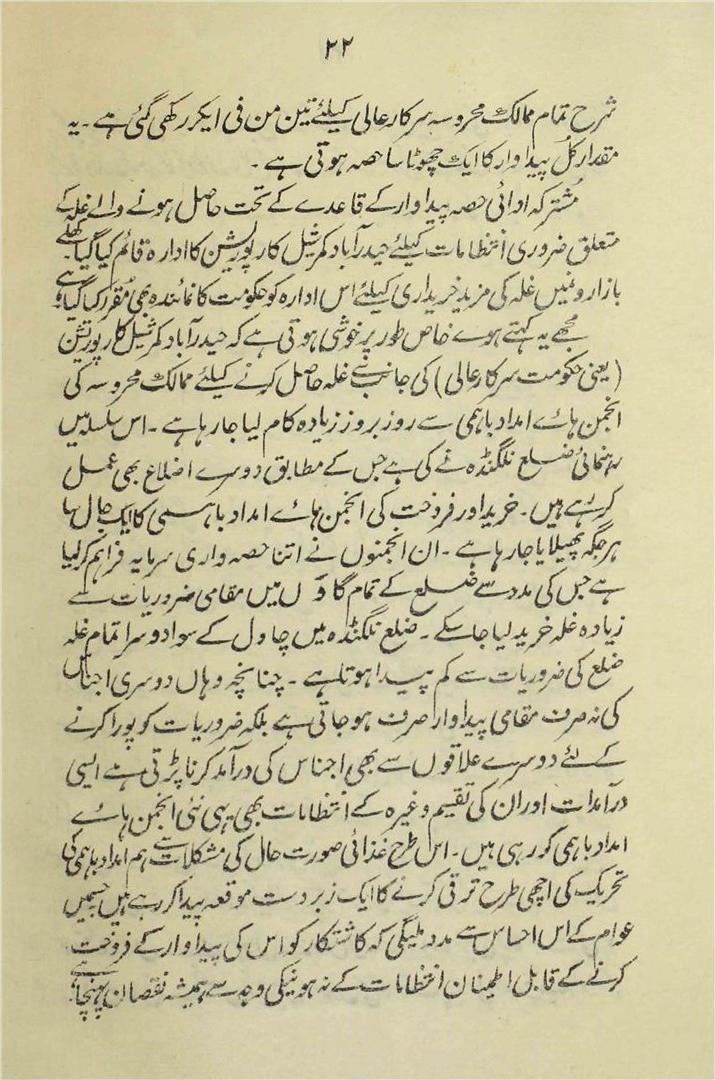 ۲۲
شرح تمام ممالک محروسہ سرکار عالی کیلئے تین من فی ایکر رکھی گئی ہے ۔ یہ
مقدار کل پیداوار کا ایک چھوٹا سا حصہ ہوتی ہے ۔
مشترکہ ادائی حصہ پیداوار کے قاعدے کے تحت حاصل ہونے والے غلہ کے
متعلق ضروری انتظامات کیلئے حیدرآباد کمرشیل کارپوریشن کا ادارہ قائم کیا گیا ہے کھلے
بازارونمیں غلہ کی مزید خریداری کیلئے اس ادارہ کو حکومت کا نمائندہ بھی مقرر کیا گیا ہے
مجھے یہ کہتے ہوے خاص طور پر خوشی ہوتی ہے کہ حیدرآباد کمرشیل کارپورتشن
(یعنی حکومت سرکار عالی) کی جانب سے غلہ حاصل کرنے کیلئے ممالک محروسہ کی
انجمن ہاے امداد باہمی سے روز بروز زیادہ کام لیا جارہا ہے ۔ اس سلسلہ میں
رہنمائی ضلع نلگنڈہ نے کی ہے جس کے مطابق دوسرے اضلاع بھی عمل
کررہے ہیں ۔ خرید اور فروخت کی انجمن ہاے امداد باہمی کا ایک جال سا
ہر جگہ پھیلایا جارہا ہے ۔ ان انجمنوں نے اتنا حصہ واری سرمایہ فراہم کرلیا
ہے جس کی مدد سے ضلع کے تمام گاؤں میں مقامی ضروریات سے
زیادہ غلہ خرید لیا جاسکے ۔ ضلع نلگنڈہ میں چاول کے سوا دوسرا تمام غلہ
ضلع کی ضروریات سے کم پیدا ہوتا ہے ۔ چنانچہ وہاں دوسری اجناس
کی نہ صرف مقامی پیداوار صرف ہوجاتی ہے بلکہ ضروریات کو پورا کرنے
کے لئے دوسرے علاقوں سے بھی اجناس کی درآمد کرنا پڑتی ہے ایسی
درآمدات اور ان کی تقسیم وغیرہ کے انتظامات بھی یہی نئی انجمن ہاے
امداد باہمی کررہی ہیں ۔ اس طرح غذائی صورت حال کی مشکلات سے ہم امداد باہمی کی
تحریک کی اچھی طرح ترقی کرنے کا ایک زبردست موقعہ پیدا کررہے ہیں جسمیں
عوام کے اس احساس سے مدد ملیگی کہ کاشتکار کو اس کی پیداوار کے فروخت
کرنے کے قابل اطمینان انتظامات کے نہ ہونیکی وجہ سے ہمیشہ نقصان پہنچا ہے